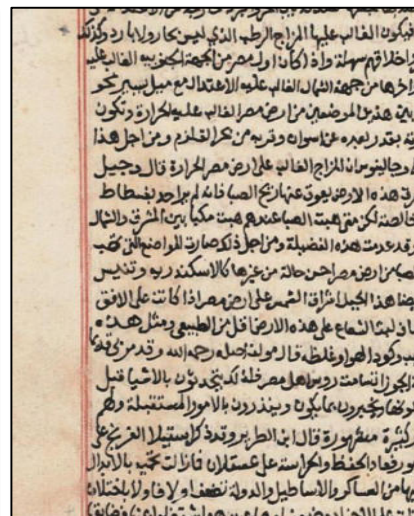 فيكون الغالب عليها المزاج الرطب الذي ليس بحار ولا بارد وكذلك
اخلاقهم سهلة واذا كان اول مصر من الجهة الجنوبية الغالب عليه
واخرها من جهة الشمال الغالب عليه الاعتدال مع ميل يسير نحو
بين هذين الموضعين من ارض مصر الغالب عليه الحرارة وتكون
فيه بقدر بعده عن اسوان وقربه من بحر القلزم ومن اجل هذا
جالينوس ان المزاج الغالب على ارض مصر الحرارة قال وجبل
هذه الارض يعوق عنها ريح الصبا فانه لم يرا حد بفسطاط
خالصة لكن متى هبت الصبا عندهم هبت نكبا بين المشرق والشمال
وقد عدمت هذه الفضيلة ومن اجل ذلك صارت المواضع التي تهب
الصبا من ارض مصر احسن حالة من غيرها كالاسكندريه وتنيس
ايضا هذا الجبل اشراق الشمس على ارض مصر اذا كانت على الافق
لبث الشعاع على هذه الارض اقل من الطبيعي ومثل هذه
ركود الهوا وغلظه قال مولف اصله رحمه الله وقد
الجوزا تسامت روس اهل مصر فلذلك يتحدثون بالاشيا قبل
ويخبرون بما يكون وينذرون بالامور المستقبلة ولهم
كثيرة مشهورة قال ابن الطوير وقد ذكر استيلا الفرنج على
الحفظ والحراسة على عسقلان فما زالت تحمى بالابدال
من العساكر والاساطيل والدولة تضعف اولا فاولا باختلاف